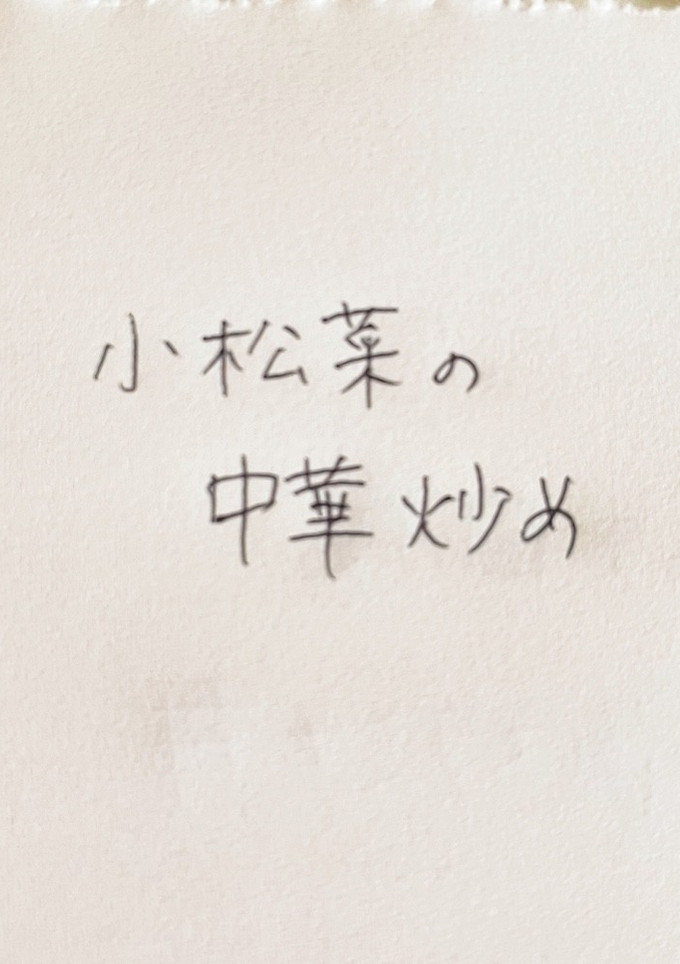 小松菜の
中華炒め